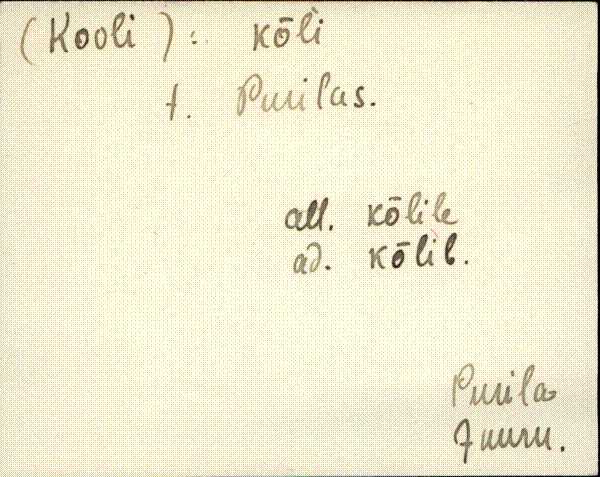 (Kooli): kōli
t. Purilas.
all. kōlile
ad. kōlil.
Purila
Juuru.